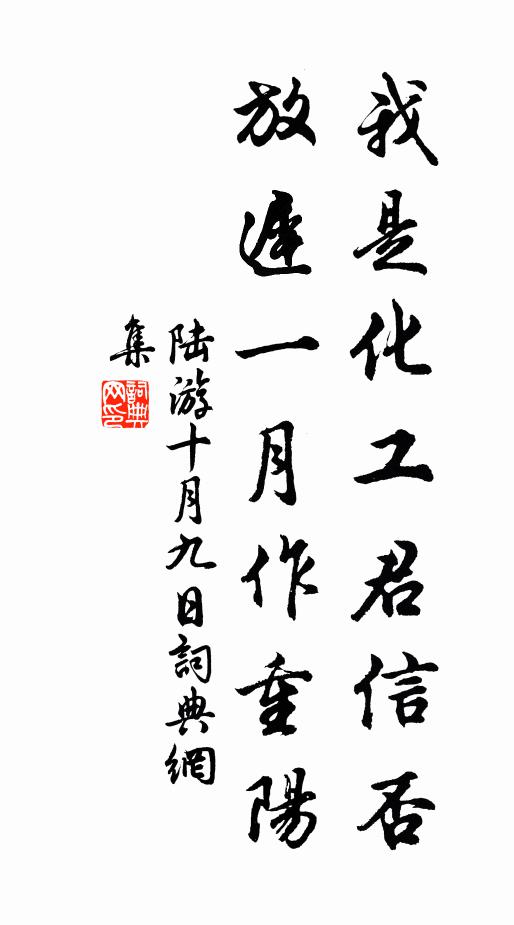 我是化工君信否
放遲一月作重陽
陆游十月九日詞典網
集
詞典
网印